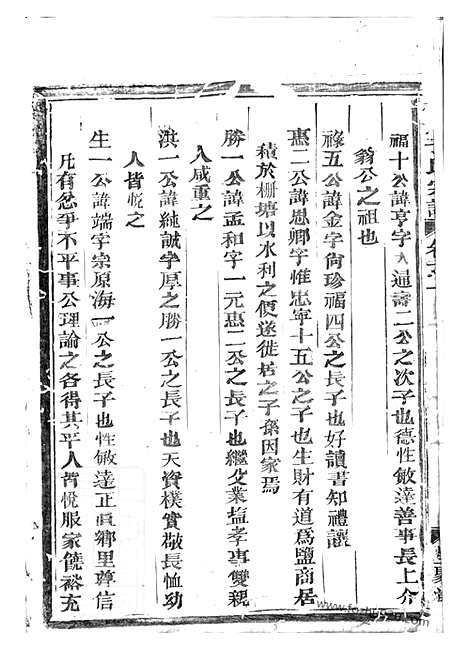 氏宗譜
福十公諱亨字大通壽二公之次子也德性敏達善事長上介
翁公之祖也
祿五公諱金字尚珍福四公之長子也好讀書知禮讓
惠二公諱思卿字惟忠寧十五公之子也生財有道為鹽商居
積於柵塘以水利之便遂徙居之子孫因家焉
勝一公諱孟和字一元惠二公之長子也繼父業益孝事雙親
人咸重之
洪一公諱純誠字厚之勝一公之長子也天資樸實敬長恤幼
人皆悅之
生一公諱端字宗原海一公之長子也性敏達正直鄉里尊信
凡有忿爭不平事公理論之各得其平人皆悅服家饒裕充